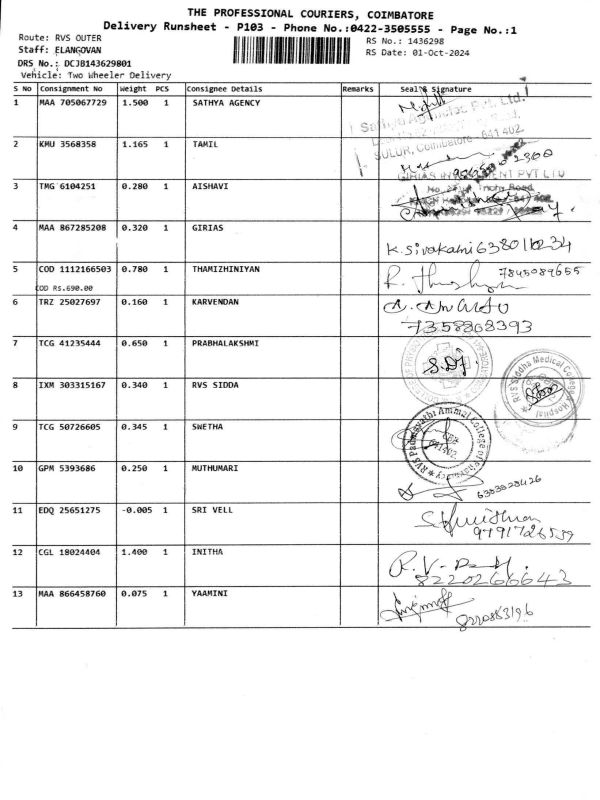 THE PROFESSIONAL COURIERS, COIMBATORE
Delivery Runsheet - P103 - Phone No.:0422-3505555 - Page No.:1
Route: RVS OUTER
RS No.: 1436298
Staff: ELANGOVAN
RS Date: 01-Oct-2024
DRS No.: DCJB143629801
Vehicle: Two Wheeler Delivery
S No Consignment No Weight PCS Consignee Details Remarks Seal & Signature
1 MAA 705067729 1.500 1 SATHYA AGENCY
Pvt. Ltd.
SULUR, Coimbatore - 641 402
2 KMU 3568358 1.165 1 TAMIL
3 TMG 6104251 0.280 1 AISHAVI
GIRIAS INVESTMENT PVT LTD
Trichy Road
4 MAA 867285208 0.320 1 GIRIAS
K. Sivakami
5 COD 1112166503 0.780 1 THAMIZHINIYAN 7845089655
COD Rs.690.00
6 TRZ 25027697 0.160 1 KARVENDAN
7358868393
7 TCG 41235444 0.650 1 PRABHALAKSHMI
8 IXM 303315167 0.340 1 RVS SIDDA
RVS Siddha Medical College & Hospital
9 TCG 50726605 0.345 1 SWETHA
RVS Padmavathi Ammal College of Pharmacy
641402
10 GPM 5393686 0.250 1 MUTHUMARI
6383828426
11 EDQ 25651275 -0.005 1 SRI VELL
9791726539
12 CGL 18024404 1.400 1 INITHA
8220266643
13 MAA 866458760 0.075 1 YAAMINI